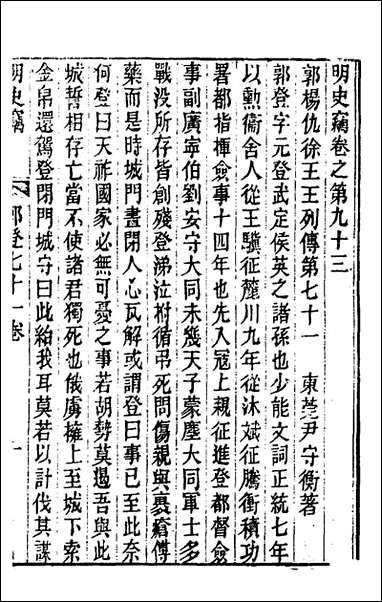 明史竊卷之第九十三
郭楊仇徐王王列傳第七十一　東莞尹守衡著
郭登字元登武定侯英之諸孫也少能文詞正統七年
以勳衞舍人從王驥征麓川九年從沐斌征騰衝積功
署都指揮僉事十四年也先入冠上親征進登都督僉
事副廣寧伯劉安守大同未幾天子蒙塵大同軍士多
戰没所存皆創殘登涕泣拊循吊死問傷親與裹瘡傅
藥而是時城門晝閉人心瓦解或謂登曰事已至此奈
何登曰天祚國家必無可憂之事若胡勢莫遏吾與此
城誓相存亡當不使諸君獨死也俄虜擁上至城下索
金帛還駕登閉門城守曰此紿我耳莫若以計伐其謀
明史竊
郭登七十一卷
一